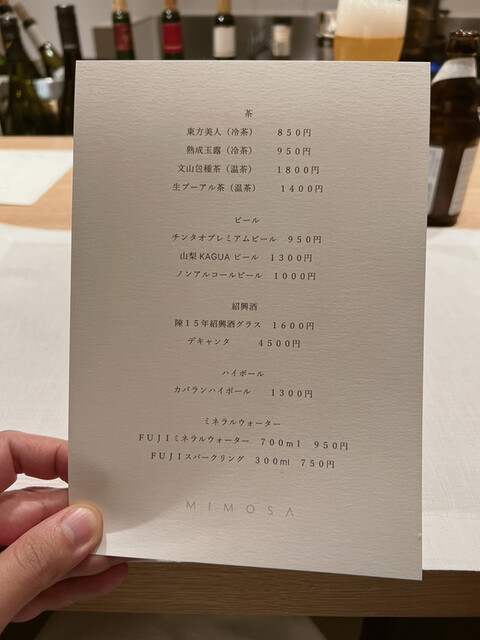 茶
東方美人（冷茶） ８５０円
熟成玉露（冷茶） ９５０円
文山包種茶（温茶） １８００円
生プーアル茶（温茶） １４００円
ビール
チンタオプレミアムビール ９５０円
山梨 KAGUA ビール １３００円
ノンアルコールビール １０００円
紹興酒
陳１５年紹興酒グラス １６００円
デキャンタ ４５００円
ハイボール
カバランハイボール １３００円
ミネラルウォーター
ＦＵＪＩミネラルウォーター ７００ｍｌ ９５０円
ＦＵＪＩスパークリング ３００ml ７５０円
MIMOSA